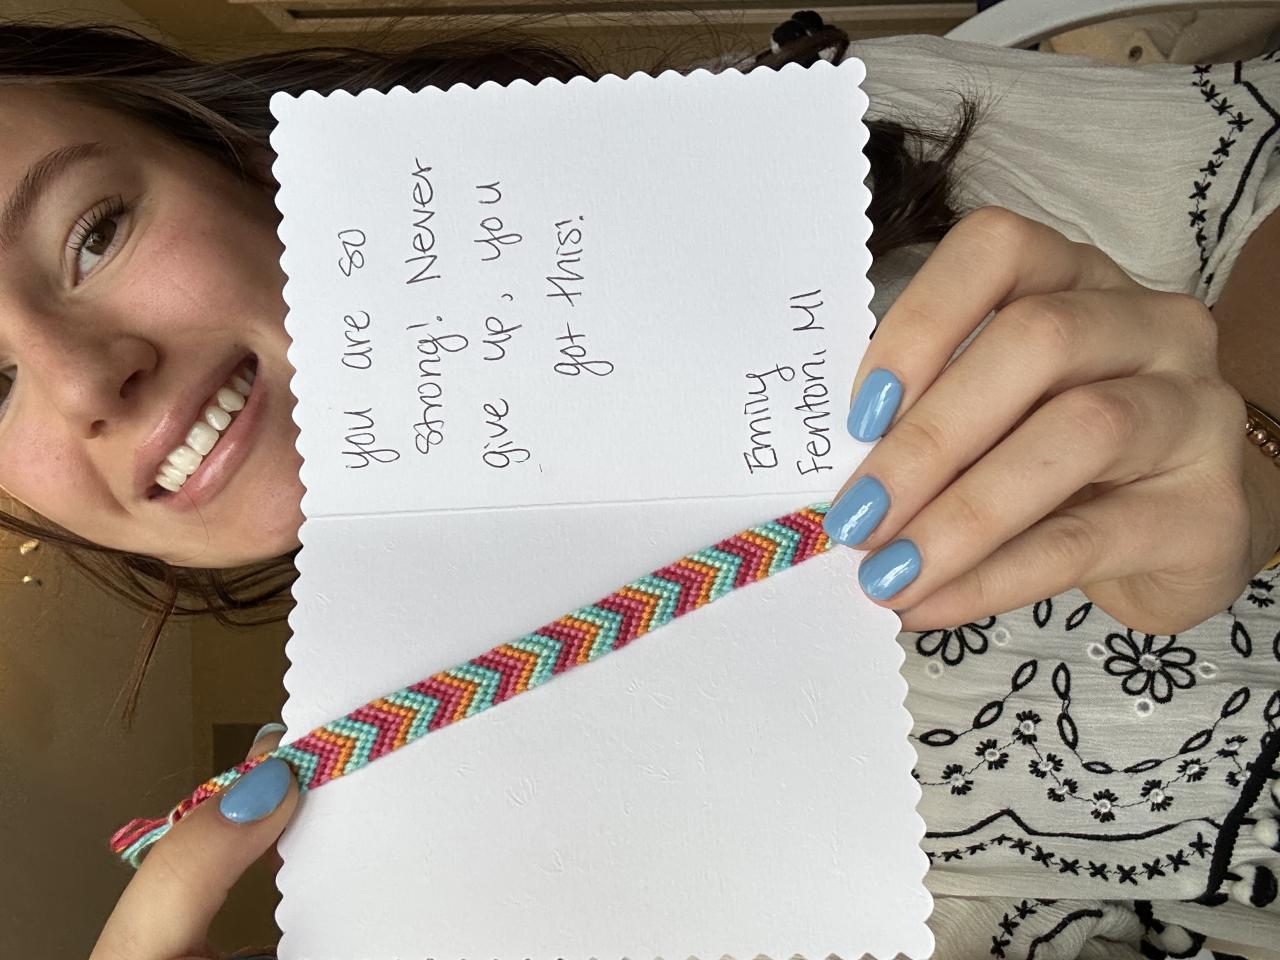 you are so
strong! Never
give up, you
got this!
Emily
Fenton, MI